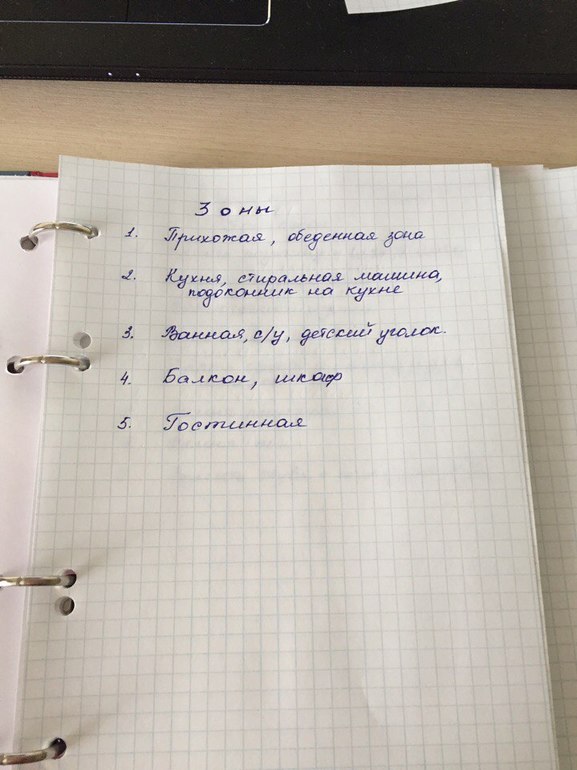 Зоны
1. Прихожая, обеденная зона
2. Кухня, стиральная машина,
подоконник на кухне
3. Ванная, с/у, детский уголок.
4. Балкон, шкаф
5. Гостинная